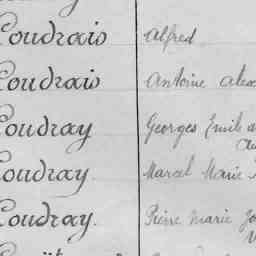 Coudrais Alfred
Coudrais Antoine Alex
Coudray Georges Emile
Coudray Marcel Marie
Coudray. Pierre Marie